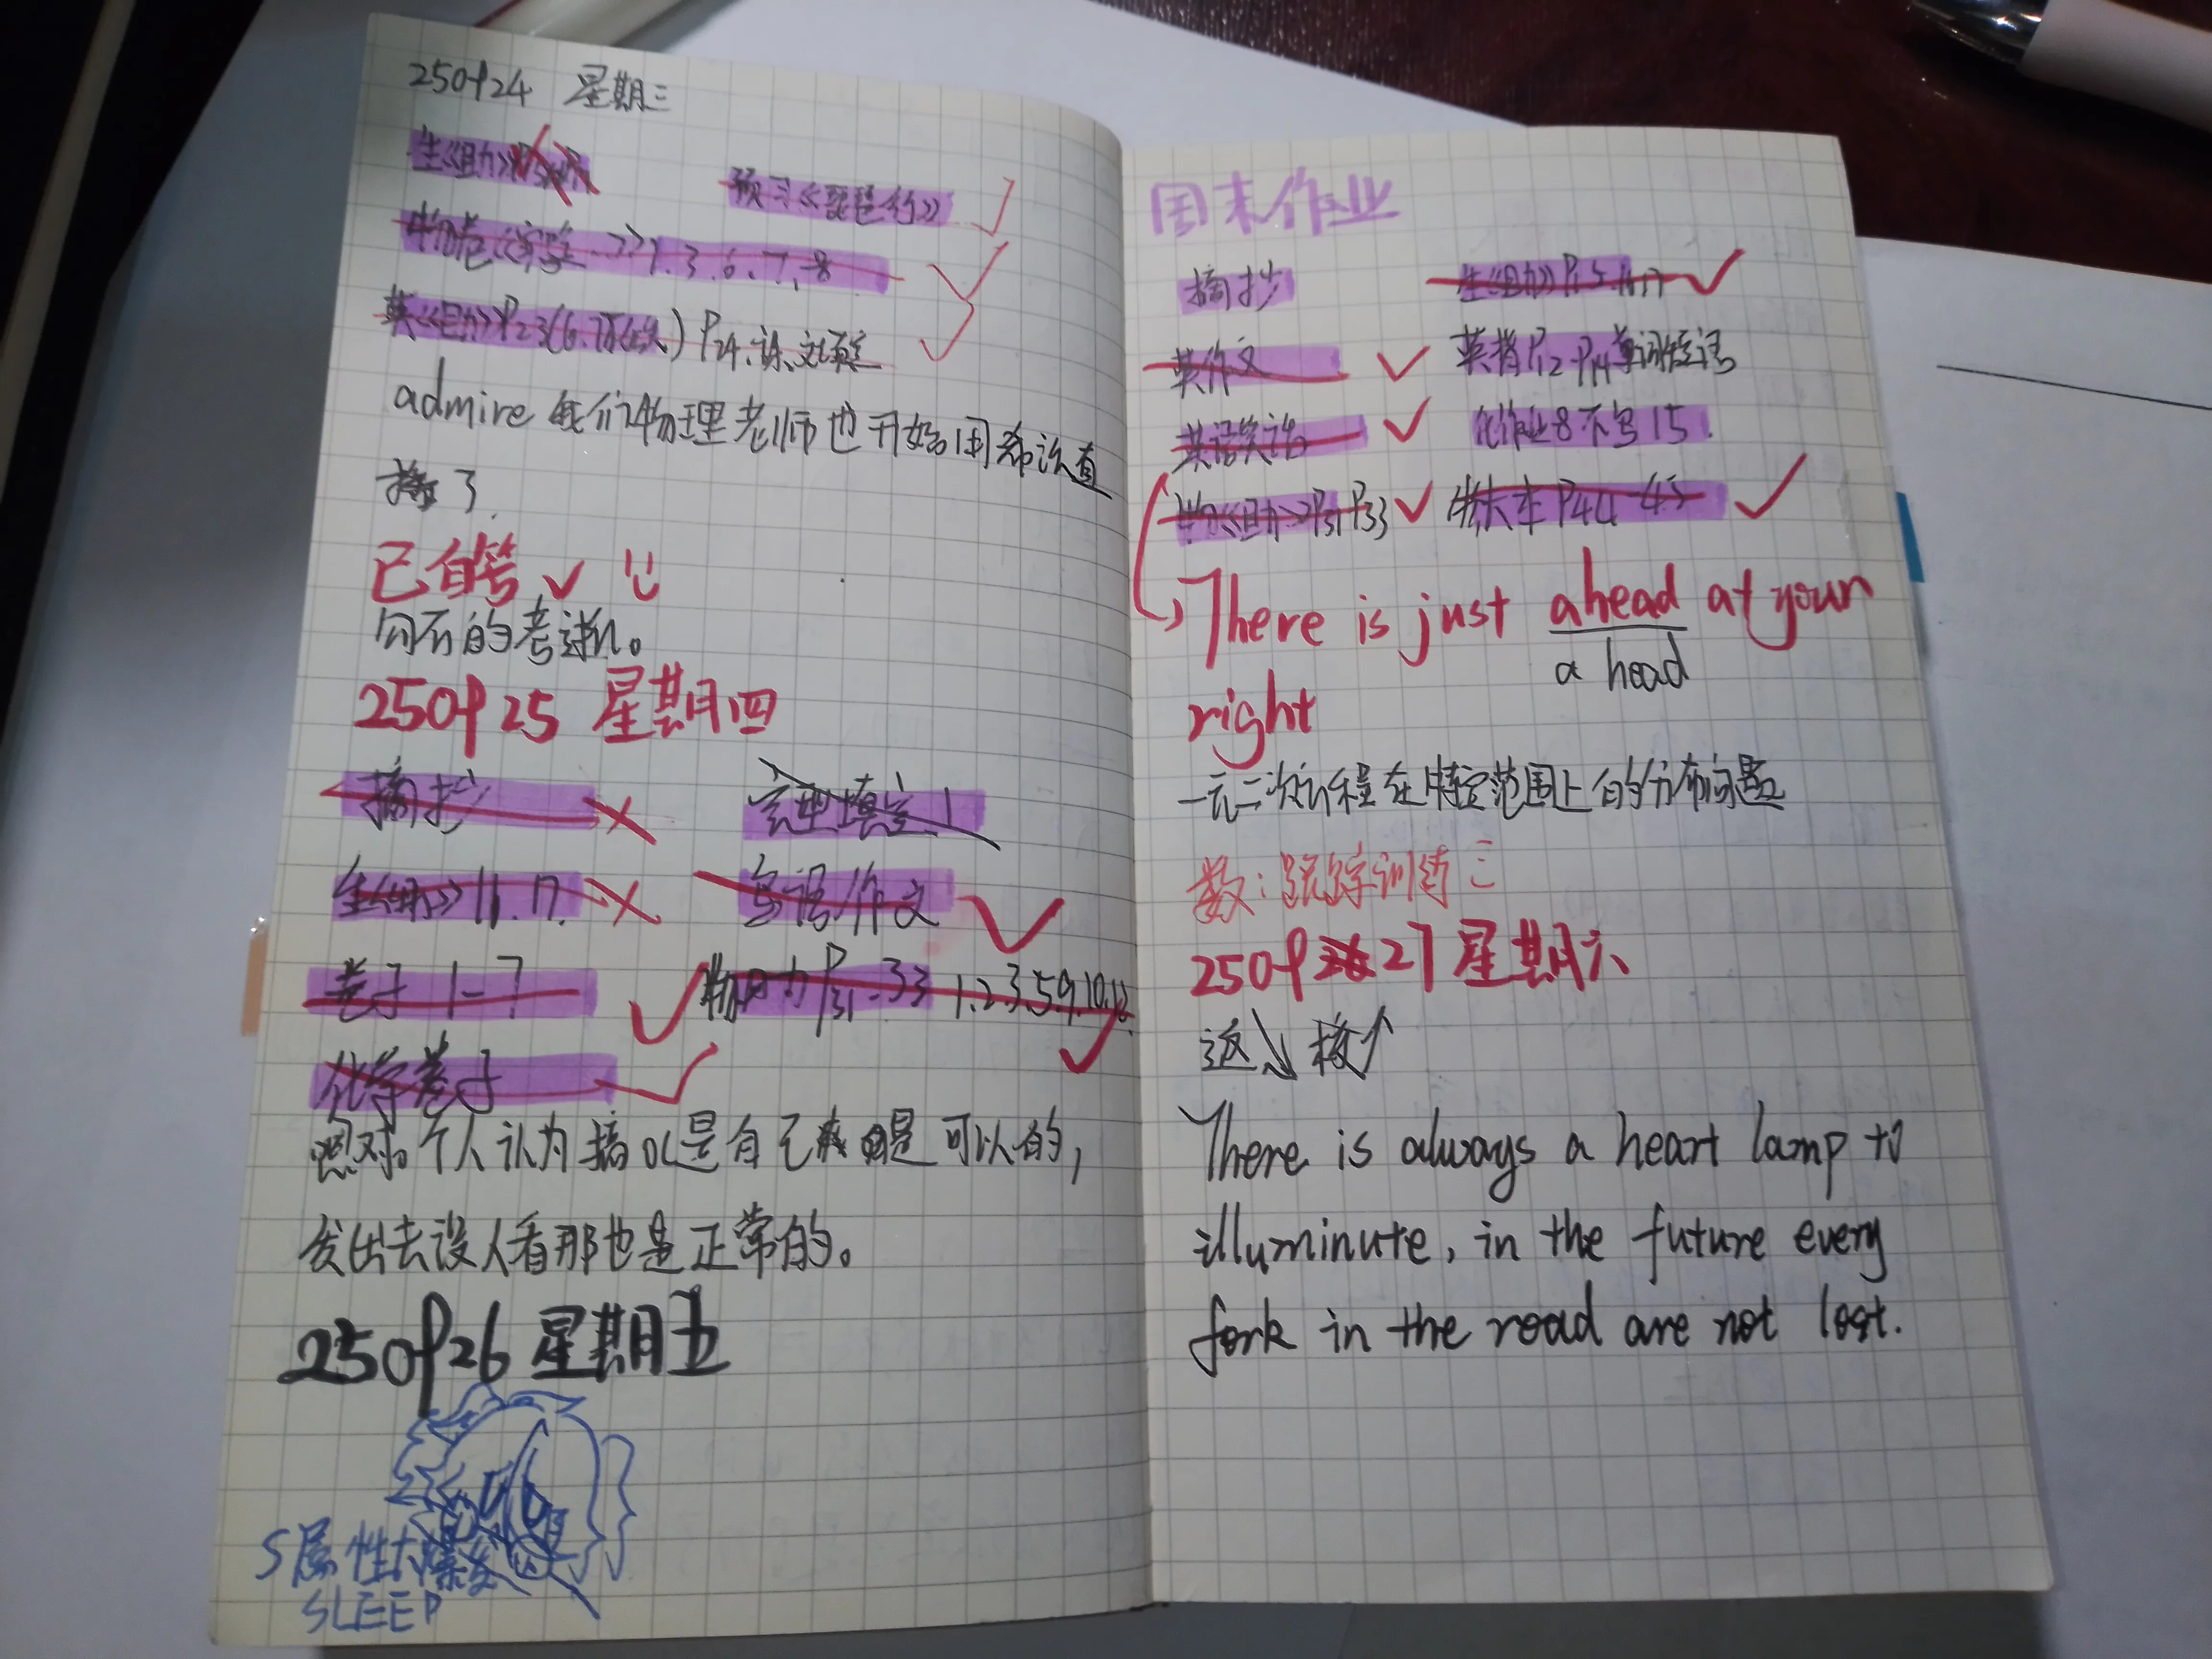 250924 星期三
生《自助》
预习《琵琶行》
物卷《实验…》1.3.6.7.8
英《自助》P23(6.7不做) P24.课文填空
admire 我们物理老师也开始用希沃直
播了.
已自答
向否的考试。
250925 星期四
摘抄
完型填空1
生《自助》11.17.
写语作文
卷子1-7
物自力P31-33 1.2.3.5.9.10.12.
化学卷子
嗯对。个人认为搞oc是自己爽是可以的,
发出去没人看那也是正常的。
250926 星期五
S属性大爆发
SLEEP
周末作业
摘抄
生《自助》P15.16.17
英作文
英背P12-P14单词短语
英语笑话
化作业8不写15.
物《自助》P31 P33
物大本P44-45
There is just ahead at your
a head
right
一元二次方程在特定范围上的分布问题
数:跟踪训练三
250927 星期六
返↓校↑
There is always a heart lamp to
illuminute, in the future every
fork in the road are not lost.